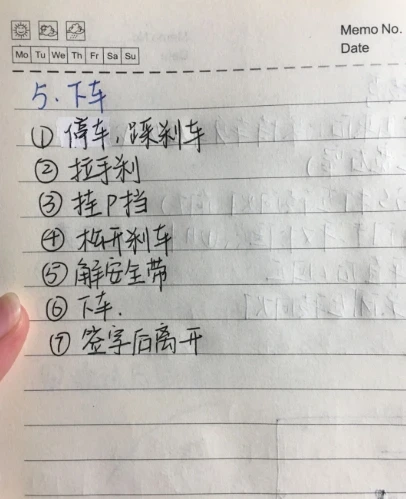 Memo No.
Date
Mo Tu We Th Fr Sa Su
5. 下车
① 停车, 踩刹车
② 拉手刹
③ 挂P挡
④ 松开刹车
⑤ 解安全带
⑥ 下车.
⑦ 签字后离开